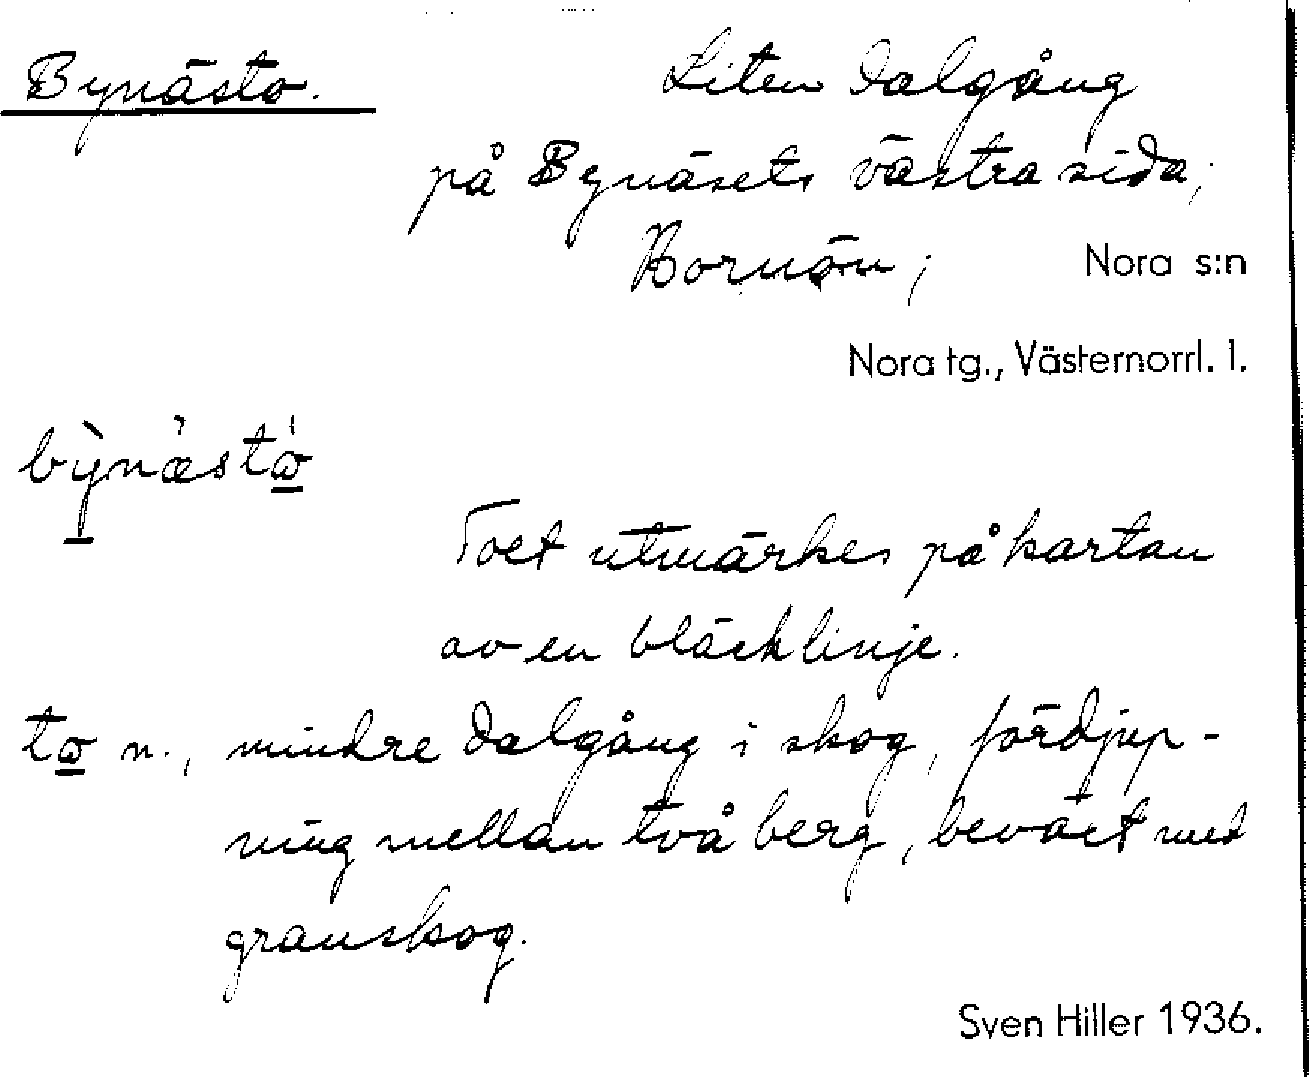 Bynästo. Liten dalgång
på Bynäsets västra sida;
Hornön; Nora s:n
Nora tg., Västernorrl. l.
bỳ̱næstω̱
Toet utmärkes på kartan
av en bläcklinje.
tω̱ n., mindre dalgång i skog, fördjup-
ning mellan två berg, beväxt med
granskog.
Sven Hiller 1936.